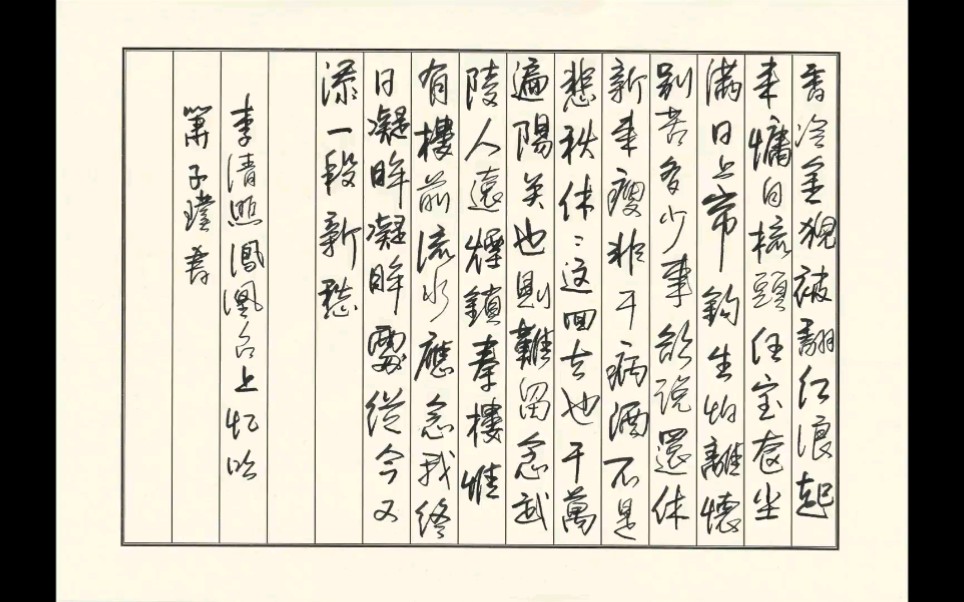 香冷金猊被翻红浪起
来慵自梳頭任宝奁尘
满日上帘鈎生怕離懷
别苦多少事欲说還休
新来瘦非干病酒不是
悲秋休〻这回去也千萬
遍陽关也則難留念武
陵人遠煙鎖秦樓惟
有樓前流水應念我终
日凝眸凝眸處從今又
添一段新愁
李清照鳳凰台上忆吹
箫子璞书